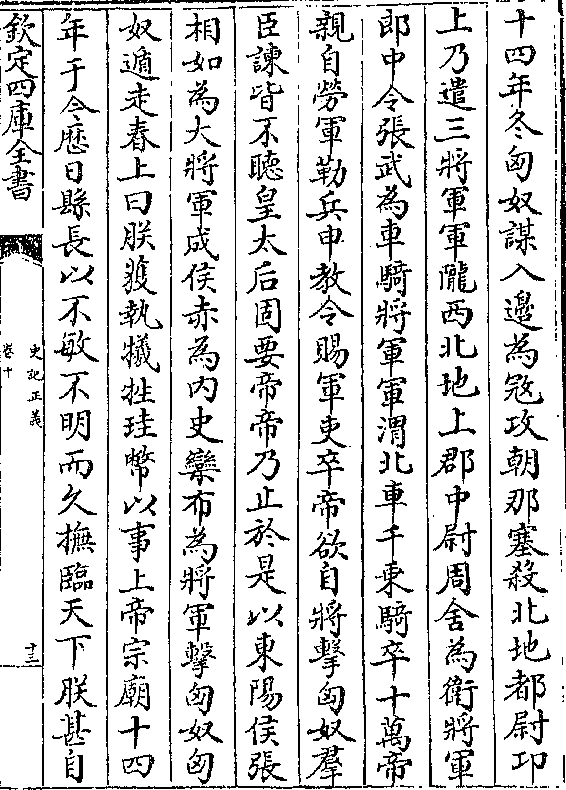 十四年冬匈奴謀入邊為宼攻朝那塞殺北地都尉卬
上乃遣三將軍軍隴西北地上郡中尉周舍為衛將軍
郎中令張武為車騎將軍軍渭北車千乗騎卒十萬帝
親自勞軍勒兵申教令賜軍吏卒帝欲自將擊匈奴羣
臣諫皆不聽皇太后固要帝帝乃止於是以東陽侯張
相如為大將軍成侯赤為内史欒布為將軍擊匈奴匈
奴遁走春上曰朕獲執犠牲珪幣以事上帝宗廟十四
年于今厯日縣長以不敏不明而久撫臨天下朕甚自
欽定四庫全書
史記正義
卷十
十三